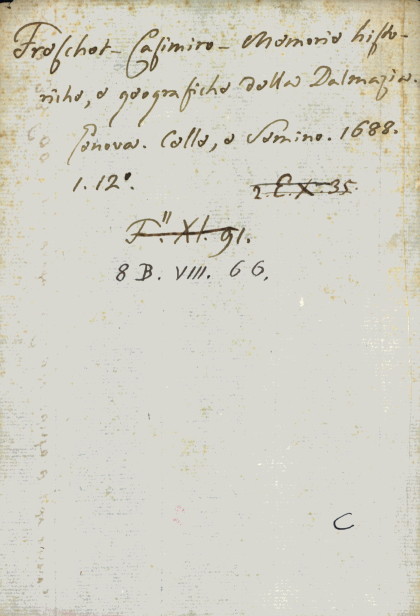 Freschot - Casimiro - Memorie histo-
riche, e geografiche della Dalmazia.
Genova. Celle, e Semino. 1688.
1. 12°.
2. E. X. 35
F." XI. 91.
8 B. VIII. 66.
C